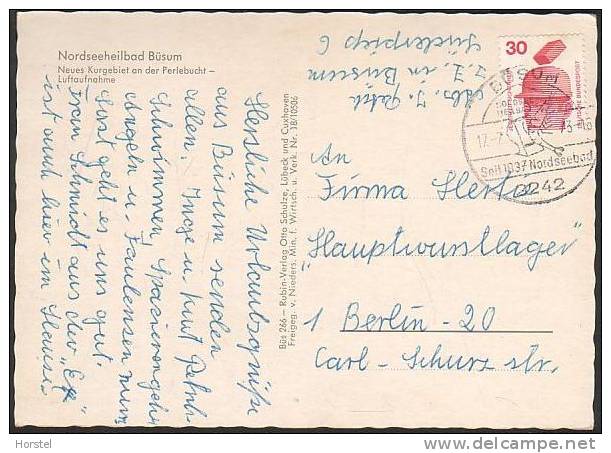 Nordseeheilbad Büsum
Neues Kurgebiet an der Perlebucht –
Luftaufnahme
Herzliche Urlaubsgrüße
aus Büsum senden
allen Inge u. Kurt
Schwimmen, Spazierengehn
Angeln u. Faulenzen nur,
dort geht es uns gut.
Frau Schmidt aus der „
ist auch hier im Hause.
Büs 286 – Rubin-Verlag Otto Schulze, Lübeck und Cuxhaven
Freigeg. v. Nieders. Min. f. Wirtsch. u. Verk. Nr. 18/10506
Abs. J.
z.Z. in Büsum
Süderpiep 6
30
DEUTSCHE BUNDESPOST
BÜSUM
Seit 1837 Nordseebad
2242
An
Firma Hertie
„Hauptwurstlager"
1 Berlin-20
Carl-Schurz str.
Horstel
www.delcampe.net